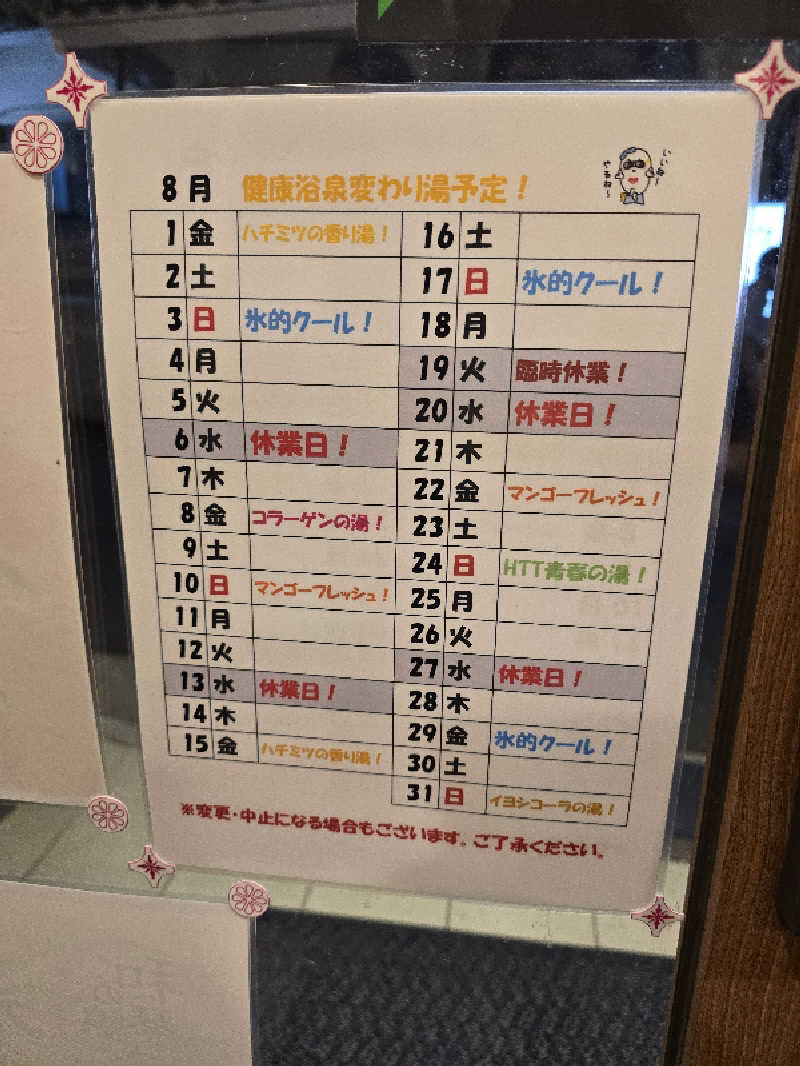 8月 健康浴泉変わり湯予定！
いいゆ〜
1 金 ハチミツの香り湯！
2 土
3 日 氷的クール！
4 月
5 火
6 水 休業日！
7 木
8 金 コラーゲンの湯！
9 土
10 日 マンゴーフレッシュ！
11 月
12 火
13 水 休業日！
14 木
15 金 ハチミツの香り湯！
16 土
17 日 氷的クール！
18 月
19 火 臨時休業！
20 水 休業日！
21 木
22 金 マンゴーフレッシュ！
23 土
24 日 HTT青春の湯！
25 月
26 火
27 水 休業日！
28 木
29 金 氷的クール！
30 土
31 日 イヨシコーラの湯！
※変更・中止になる場合もございます。ご了承ください。